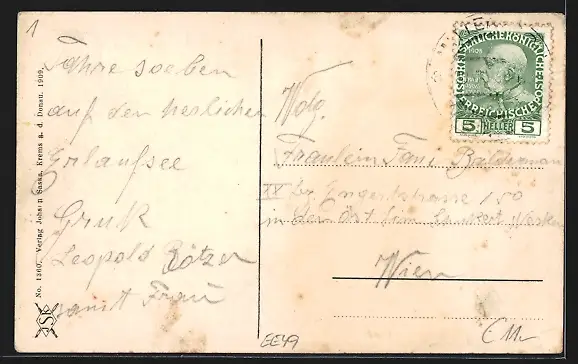 1
Fahre soeben
auf den herlichen
Erlaufsee
Gruß
Leopold Rötzer
samt Frau
No. 1360. Verlag Johann Sassa, Krems a. d. Donau. 1909.
JSK
Wolg.
Fräulein Fani
XX bz Engertstrasse 150
in den Öst
Wien
EE49
KAISERLICHE KÖNIGLICHE
ÖSTERREICHISCHE POST
5 HELLER 5